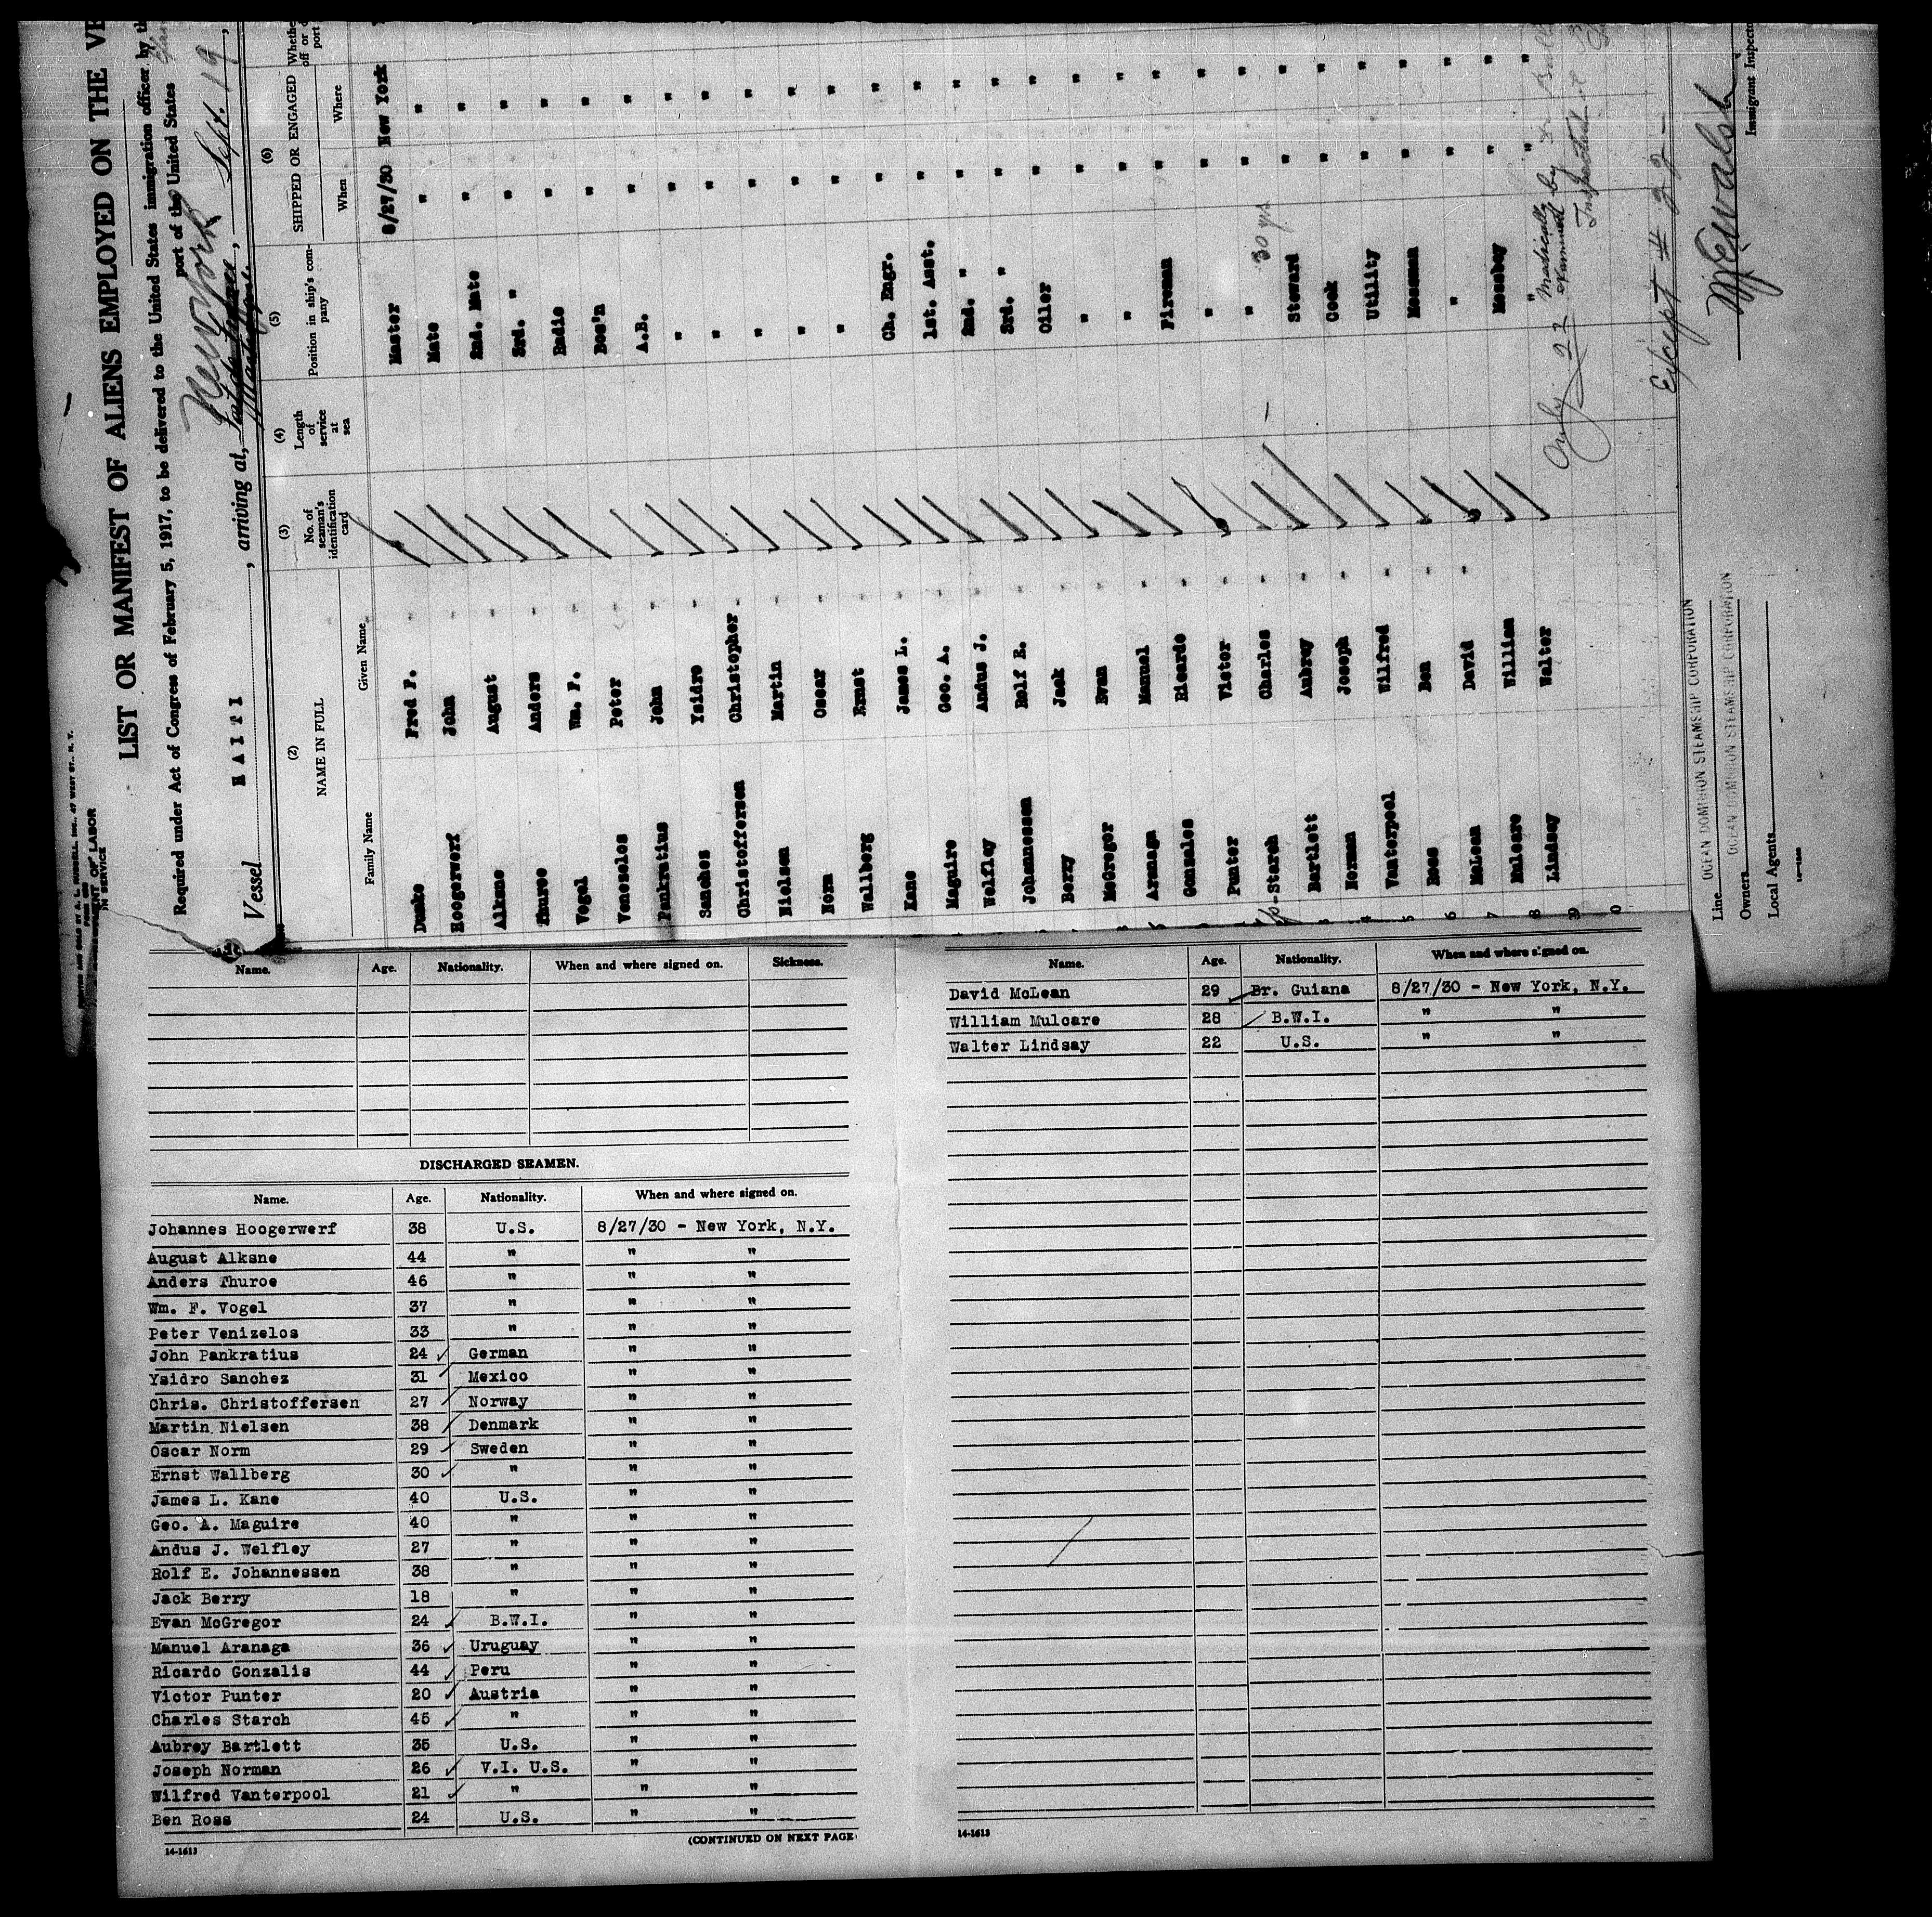 LIST OR MANIFEST OF ALIENS EMPLOYED ON THE VE
Required under Act of Congress of February 5, 1917, to be delivered to the United States immigration officer by th
port of the United States
Vessel HAITI, arriving at, New York, Sept. 19,
(2) (3) (4) (5) (6)
NAME IN FULL No. of seaman's identification card Length of service at sea Position in ship's company SHIPPED OR ENGAGED
Family Name Given Name When Where
Dunke Fred F. Master 8/27/30 New York
Hoogerwerf John Mate " "
Alksne August 2nd. Mate " "
Thuroe Anders 3rd. " " "
Vogel Wm. F. Radio " "
Venezelos Peter Bos'n " "
Pankratius John A.B. " "
Sanches Ysidro " " "
Christoffersen Christopher " " "
Nielsen Martin " " "
Norm Oscar " " "
Wallberg Ernst " " "
Kane James L. Ch. Engr. " "
Maguire Geo. A. 1st. Asst. " "
Welfley Andus J. 2nd. " " "
Johannessen Rolf E. 3rd. " " "
Berry Jack Oiler " "
McGregor Evan " " "
Aranaga Manuel " " "
Gonsales Ricardo Fireman " "
Punter Victor " " "
Starch Charles " 30 yrs " "
Bartlett Aubrey Steward " "
Norman Joseph Cook " "
Vanterpool Wilfred Utility " "
Ross Ben Messman " "
McLean David " " "
Mulcare William Messboy " "
Lindsay Walter " " "
Only 22 Medically examined by
Inspected
Except # 22 -
Line OCEAN DOMINION STEAMSHIP CORPORATION
Owners OCEAN DOMINION STEAMSHIP CORPORATION
Local Agents
Immigrant Inspecto
Name. Age. Nationality. When and where signed on. Sickness.
DISCHARGED SEAMEN.
Name. Age. Nationality. When and where signed on.
Johannes Hoogerwerf 38 U.S. 8/27/30 - New York, N.Y.
August Alksne 44 " " "
Anders Thuroe 46 " " "
Wm. F. Vogel 37 " " "
Peter Venizelos 33 " " "
John Pankratius 24 German " "
Ysidro Sanchez 31 Mexico " "
Chris. Christoffersen 27 Norway " "
Martin Nielsen 38 Denmark " "
Oscar Norm 29 Sweden " "
Ernst Wallberg 30 " " "
James L. Kane 40 U.S. " "
Geo. A. Maguire 40 " " "
Andus J. Welfley 27 " " "
Rolf E. Johannessen 38 " " "
Jack Berry 18 " " "
Evan McGregor 24 B.W.I. " "
Manuel Aranaga 36 Uruguay " "
Ricardo Gonzalis 44 Peru " "
Victor Punter 20 Austria " "
Charles Starch 45 " " "
Aubrey Bartlett 35 U.S. " "
Joseph Norman 26 V.I. U.S. " "
Wilfred Vanterpool 21 " " "
Ben Ross 24 U.S. " "
14-1613 (CONTINUED ON NEXT PAGE
Name. Age. Nationality. When and where signed on.
David McLean 29 Br. Guiana 8/27/30 - New York, N.Y.
William Mulcare 28 B.W.I. " "
Walter Lindsay 22 U.S. " "
14-1613